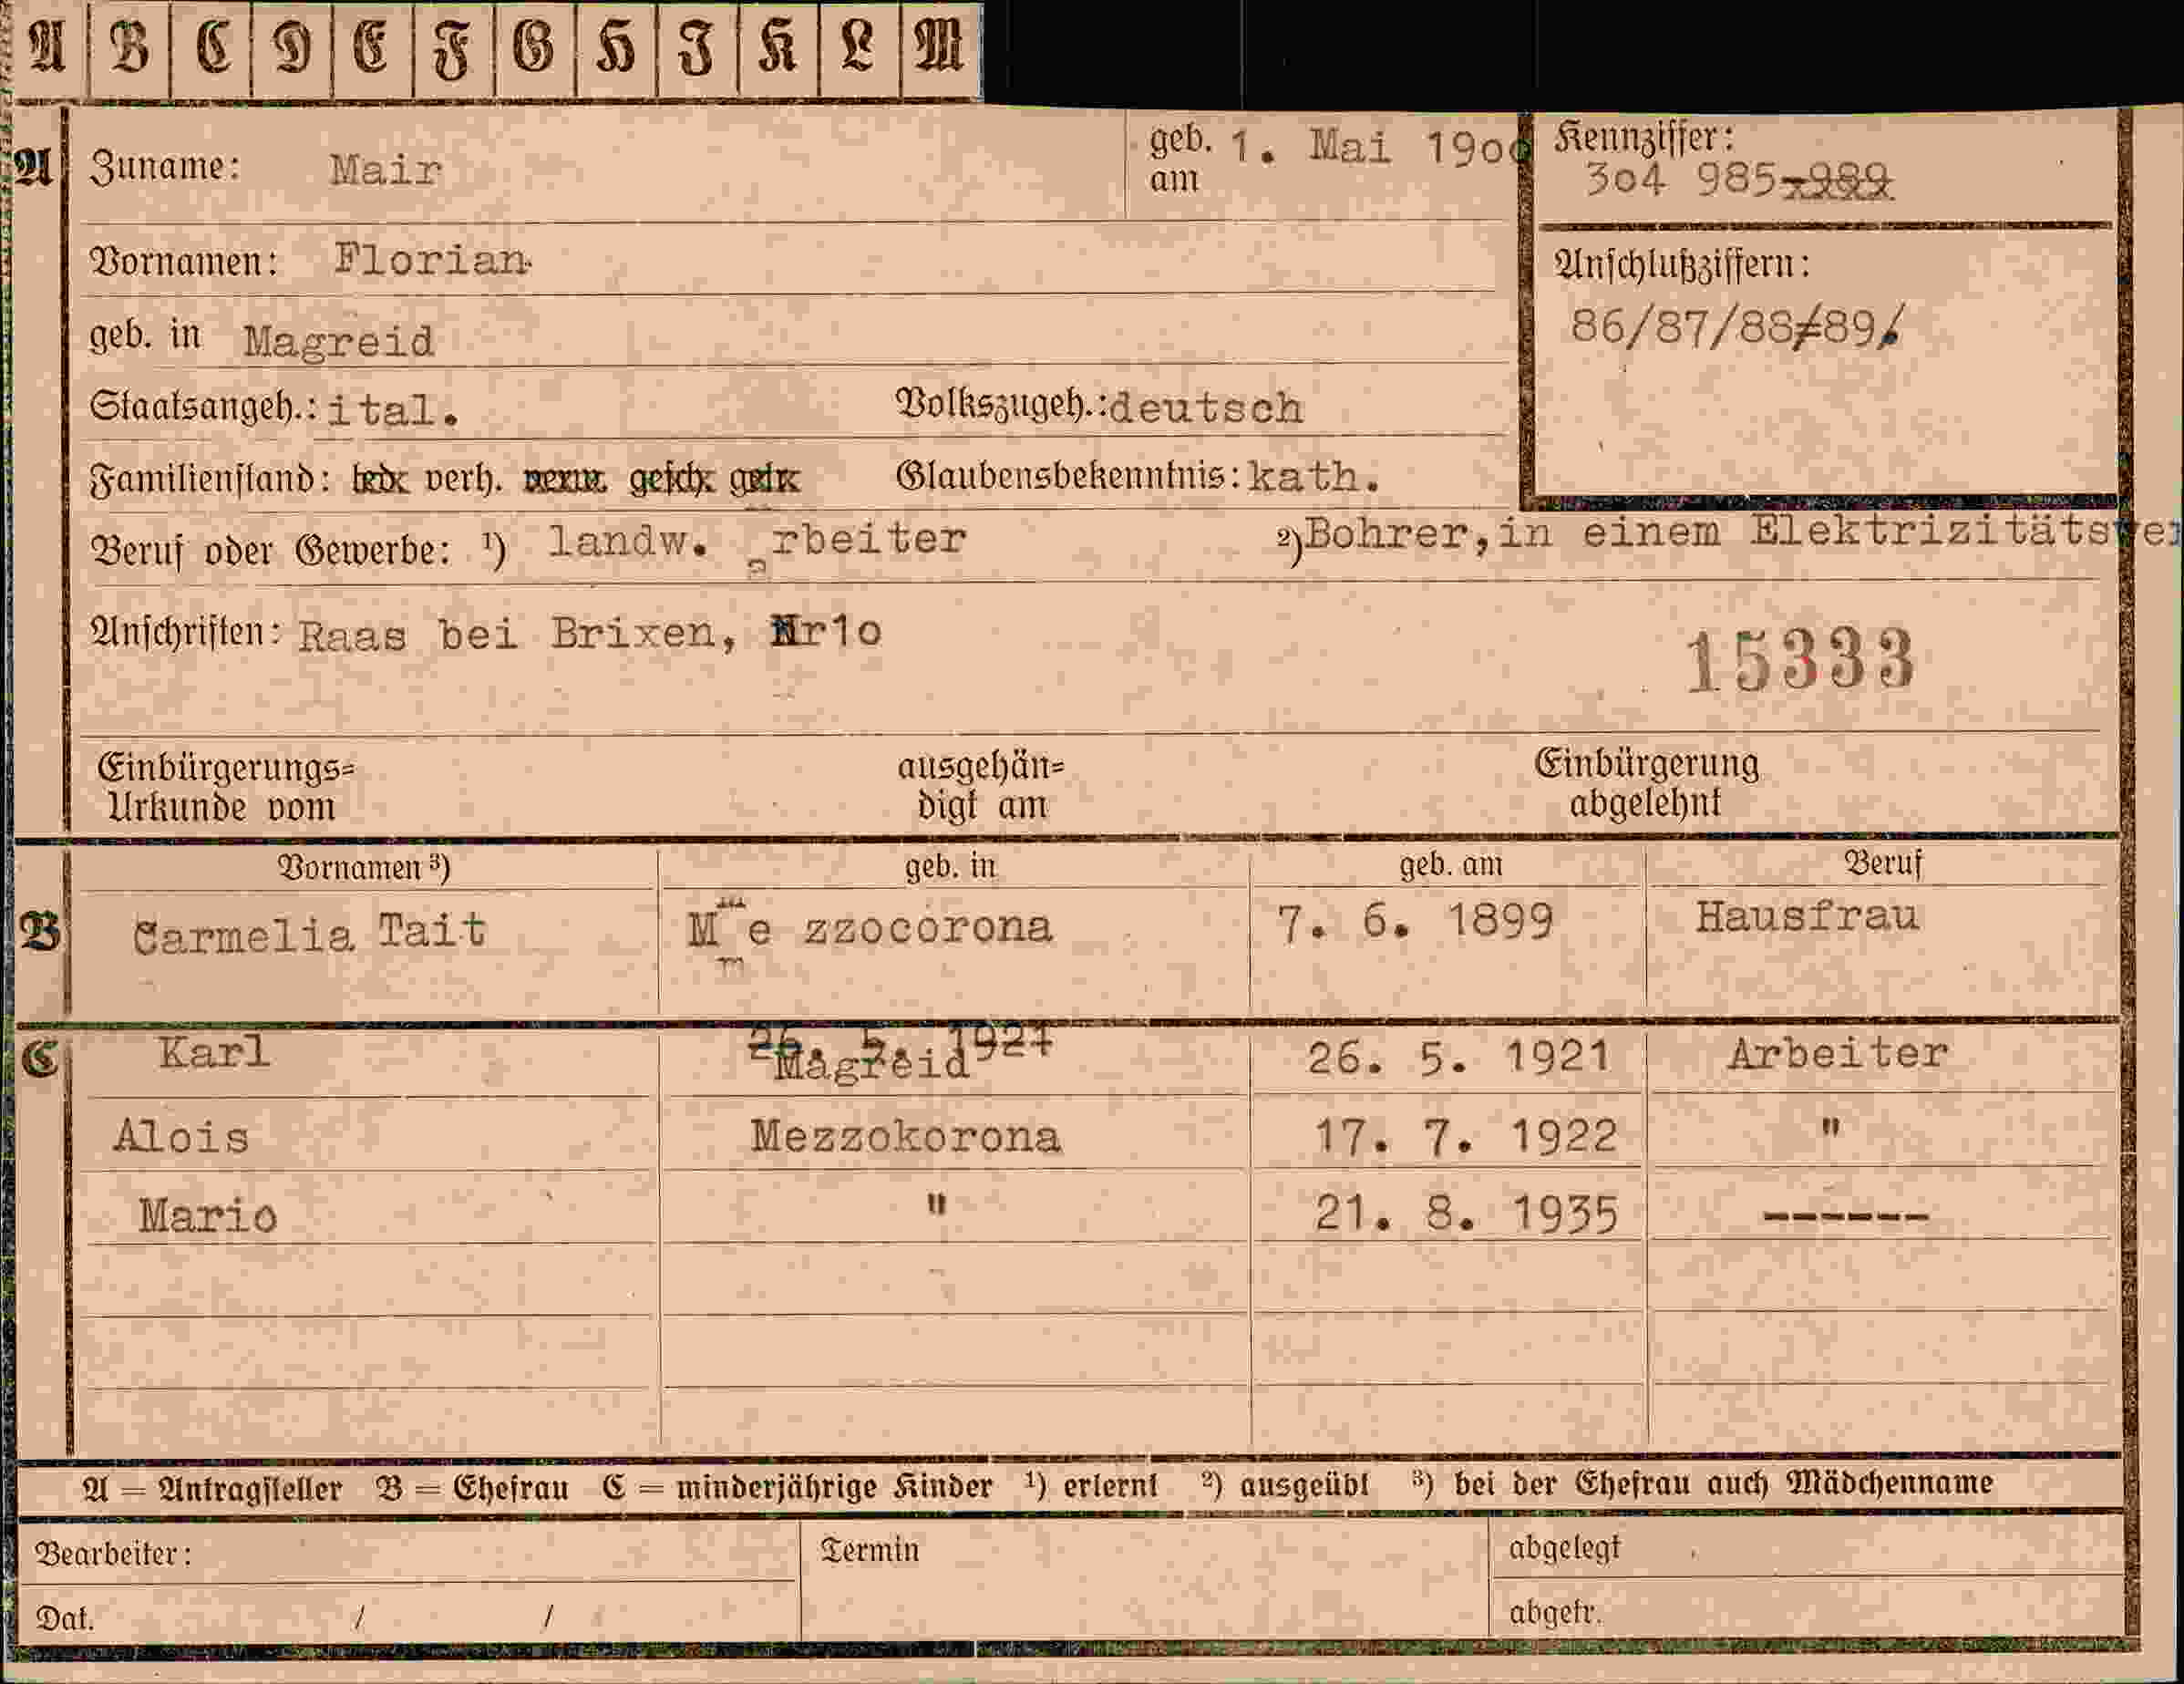 A B C D E F G H I K L M
A Zuname: Mair geb. am 1. Mai 190
Kennziffer: 304 985-989
Vornamen: Florian
Anschlußziffern: 86/87/88/89/
geb. in Magreid
Staatsangeh.: ital. Volkszugeh.: deutsch
Familienstand: led. verh. verw. gesch. getr. Glaubensbekenntnis: kath.
Beruf oder Gewerbe: ¹) landw. arbeiter ²) Bohrer, in einem Elektrizitätswer
Anschriften: Raas bei Brixen, Nr1o
15333
Einbürgerungs-Urkunde vom ausgehändigt am Einbürgerung abgelehnt
Vornamen ³) geb. in geb. am Beruf
B Carmelia Tait Me zzocorona 7. 6. 1899 Hausfrau
C Karl 26. 5. 1921 Magreid 26. 5. 1921 Arbeiter
Alois Mezzokorona 17. 7. 1922 "
Mario " 21. 8. 1935 ------
A = Antragsteller B = Ehefrau C = minderjährige Kinder ¹) erlernt ²) ausgeübt ³) bei der Ehefrau auch Mädchenname
Bearbeiter: Termin abgelegt
Dat. / / abgetr.